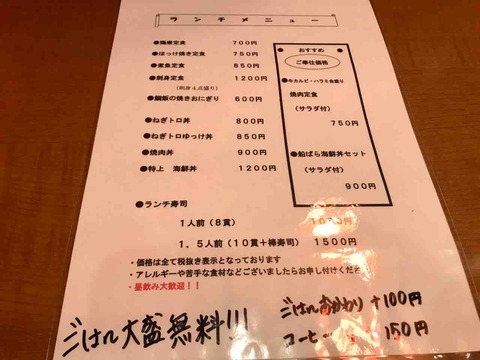 ランチメニュー
●鶏唐定食 700円
●ほっけ焼き定食 750円
●煮魚定食 850円
●刺身定食 1200円
(刺身4点盛り)
●鯛飯の焼きおにぎり 600円
●ねぎトロ丼 800円
●ねぎトロゆっけ丼 850円
●焼肉丼 900円
●特上 海鮮丼 1200円
おすすめ
ご奉仕価格
●牛カルビ・ハラミ合盛り
焼肉定食
(サラダ付)
750円
●船ばら海鮮丼セット
(サラダ付)
900円
●ランチ寿司
1人前(8貫)
1.5人前(10貫+棒寿司) 1500円
・価格は全て税抜き表示となっております
・アレルギーや苦手な食材などございましたらお申し付けください
・昼飲み大歓迎!!
ごはん大盛無料!!!
ごはんおかわり +100円
コーヒー 150円